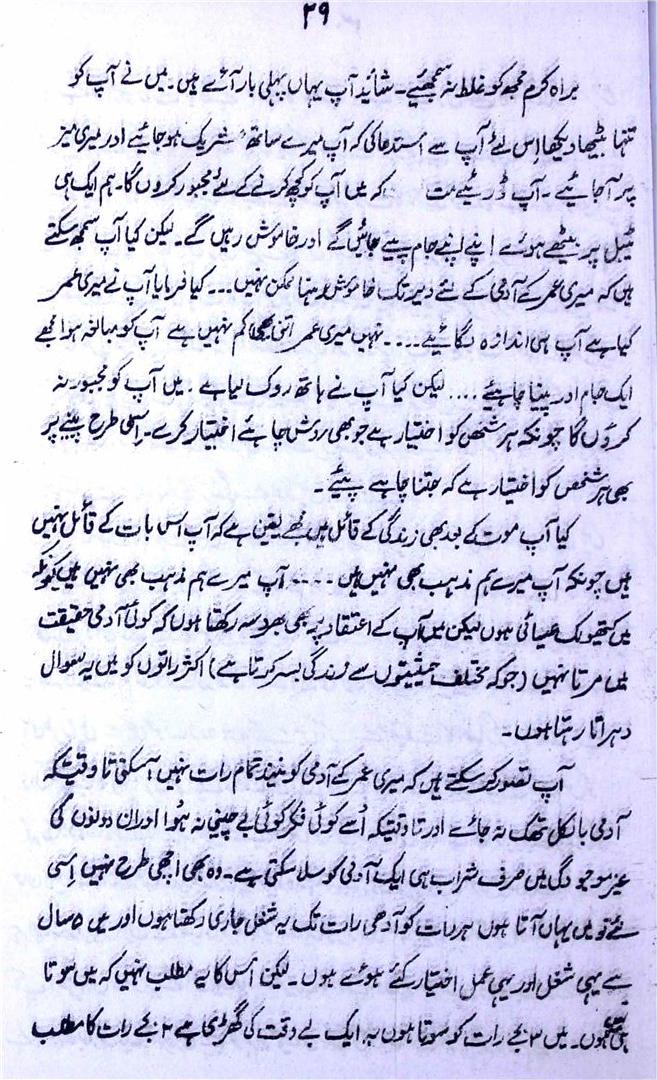 ۳۹
براہ کرم مجھ کو غلط نہ سمجھیئے۔ شائید آپ یہاں پہلی بار آئے ہیں۔ میں نے آپ کو
تنہا بیٹھا دیکھا اِس لئے آپ سے استدعا کی کہ آپ میرے ساتھ شریک ہو جائیے اور میری میز
پر آ جائیے ۔ آپ ڈریئے مت کہ میں آپ کو کچھ کرنے کے لئے مجبور کروں گا۔ ہم ایک ہی
ٹیبل پر بیٹھے ہوئے اپنے اپنے جام پیئے جائیں گے اور خاموش رہیں گے۔ لیکن کیا آپ سمجھ سکتے
ہیں کہ میری عمر کے آدمی کے لئے دیر تک خاموش رہنا ممکن نہیں ... کیا فرمایا آپ نے میری عمر
کیا ہے آپ ہی اندازہ لگائیے .... نہیں میری عمر اتنی بھی کم نہیں ہے آپ کو مبالغہ ہوا مجھے
ایک جام اور پینا چاہیئے .... لیکن کیا آپ نے ہاتھ روک لیا ہے ۔ میں آپ کو مجبور نہ
کروں گا چونکہ ہر شخص کو اختیار ہے جو بھی روش چاہے اختیار کرے۔ اسی طرح پینے پر
بھی ہر شخص کو اختیار ہے کہ جتنا چاہے پیئے ۔
کیا آپ موت کے بعد بھی زندگی کے قائل ہیں مجھے یقین ہے کہ آپ اس بات کے قائل نہیں
ہیں چونکہ آپ میرے ہم مذہب بھی نہیں ہیں .... آپ میرے ہم مذہب بھی نہیں ہیں کیونکہ
میں کیتھولک عیسائی ہوں لیکن میں آپ کے اعتقاد پر بھی بھروسہ رکھتا ہوں کہ کوئی آدمی حقیقت
میں مرتا نہیں (جو کہ مختلف حیثیتوں سے زندگی بسر کرتا ہے) اکثر راتوں کو میں یہ سوال
دہراتا رہتا ہوں۔
آپ تصور کر سکتے ہیں کہ میری عمر کے آدمی کو نیند تمام رات نہیں آ سکتی تا وقتیکہ
آدمی بالکل تھک نہ جائے اور تا وقتیکہ اُسے کوئی فکر کوئی بے چینی نہ ہو اور ان دونوں کی
غیر موجودگی میں صرف شراب ہی ایک آدمی کو سلا سکتی ہے۔ وہ بھی اچھی طرح نہیں اِسی
لئے تو میں یہاں آتا ہوں ہر رات کو آدھی رات تک یہ شغل جاری رکھتا ہوں اور میں ۵ سال
سے یہی شغل اور یہی عمل اختیار کئے ہوئے ہوں ۔ لیکن اُس کا یہ مطلب نہیں کہ میں سوتا
ہی نہیں ہوں۔ میں ۳ بجے رات کو سوتا ہوں یہ ایک بے وقت کی گھڑی ہے ۲ بجے رات کا مطلب